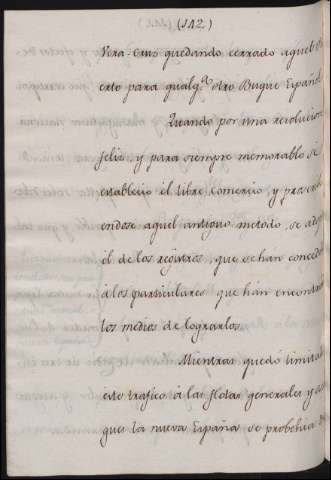 (112)
Vera-Cruz quedando cerrado aquel
erto para qualq.a otro Buque Español
Quando por una revolucion
feliz, y para siempre memorable se
establecio el libre Comercio, y prosc
endose aquel antiguo metodo, se ad
el de los registros, que se hán conced
á los particulares que hán encontra
los medios de lograrlos.
Mientras quedó limita
este trafico á las flotas generales y a
gues la nueva España se probehia